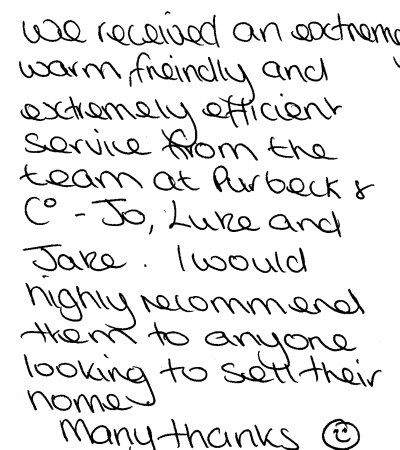 we received an extreme
warm, freindly and
extremely efficient
service from the
team at Purbeck &
Co - Jo, Luke and
Jake. I would
highly recommend
them to anyone
looking to sell their
home
Many thanks ☺